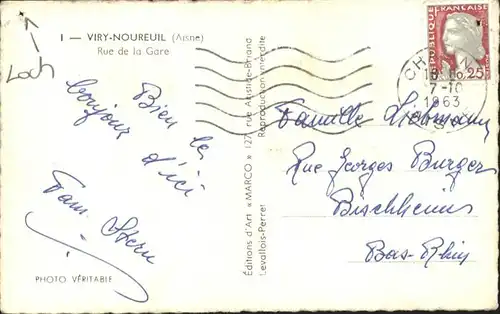 I - VIRY-NOUREUIL (Aisne)
Rue de la Gare
Loch
Bien le
bonjour d'ici
Fam. Stern
PHOTO VÉRITABLE
Éditions d'Art « MARCO » 127, rue Aristide-Briand
Levallois-Perret
Reproduction interdite
RÉPUBLIQUE FRANÇAISE
0,25
CHAUNY
7-10
1963
AISNE
Famille Liebmann
Rue Georges Burger
Bischheim
Bas-Rhin